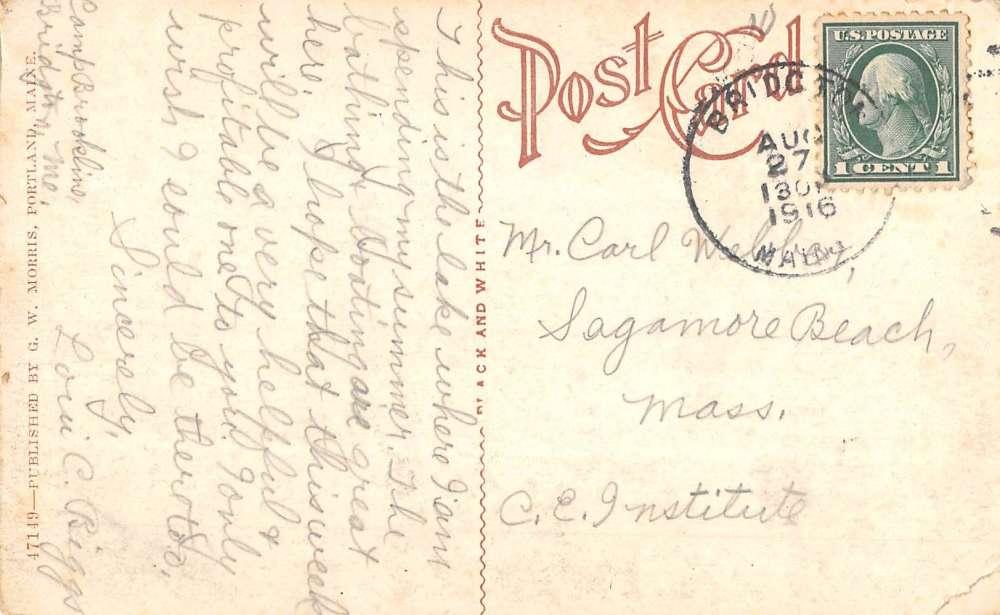 Post Card
U.S. POSTAGE
1 CENT 1
AUG
27
1916
Mr. Carl
Sagamore Beach,
Mass.
C. E. Institute
BLACK AND WHITE
This is the lake where I am
spending my summer. The
bathing & boating are great
here. I hope that this week
will be a very helpful &
profitable one to you. I only
wish I could be there too.
Sincerely,
C. Biggs
Camp
Me.
47149—PUBLISHED BY G. W. MORRIS, PORTLAND, MAINE.